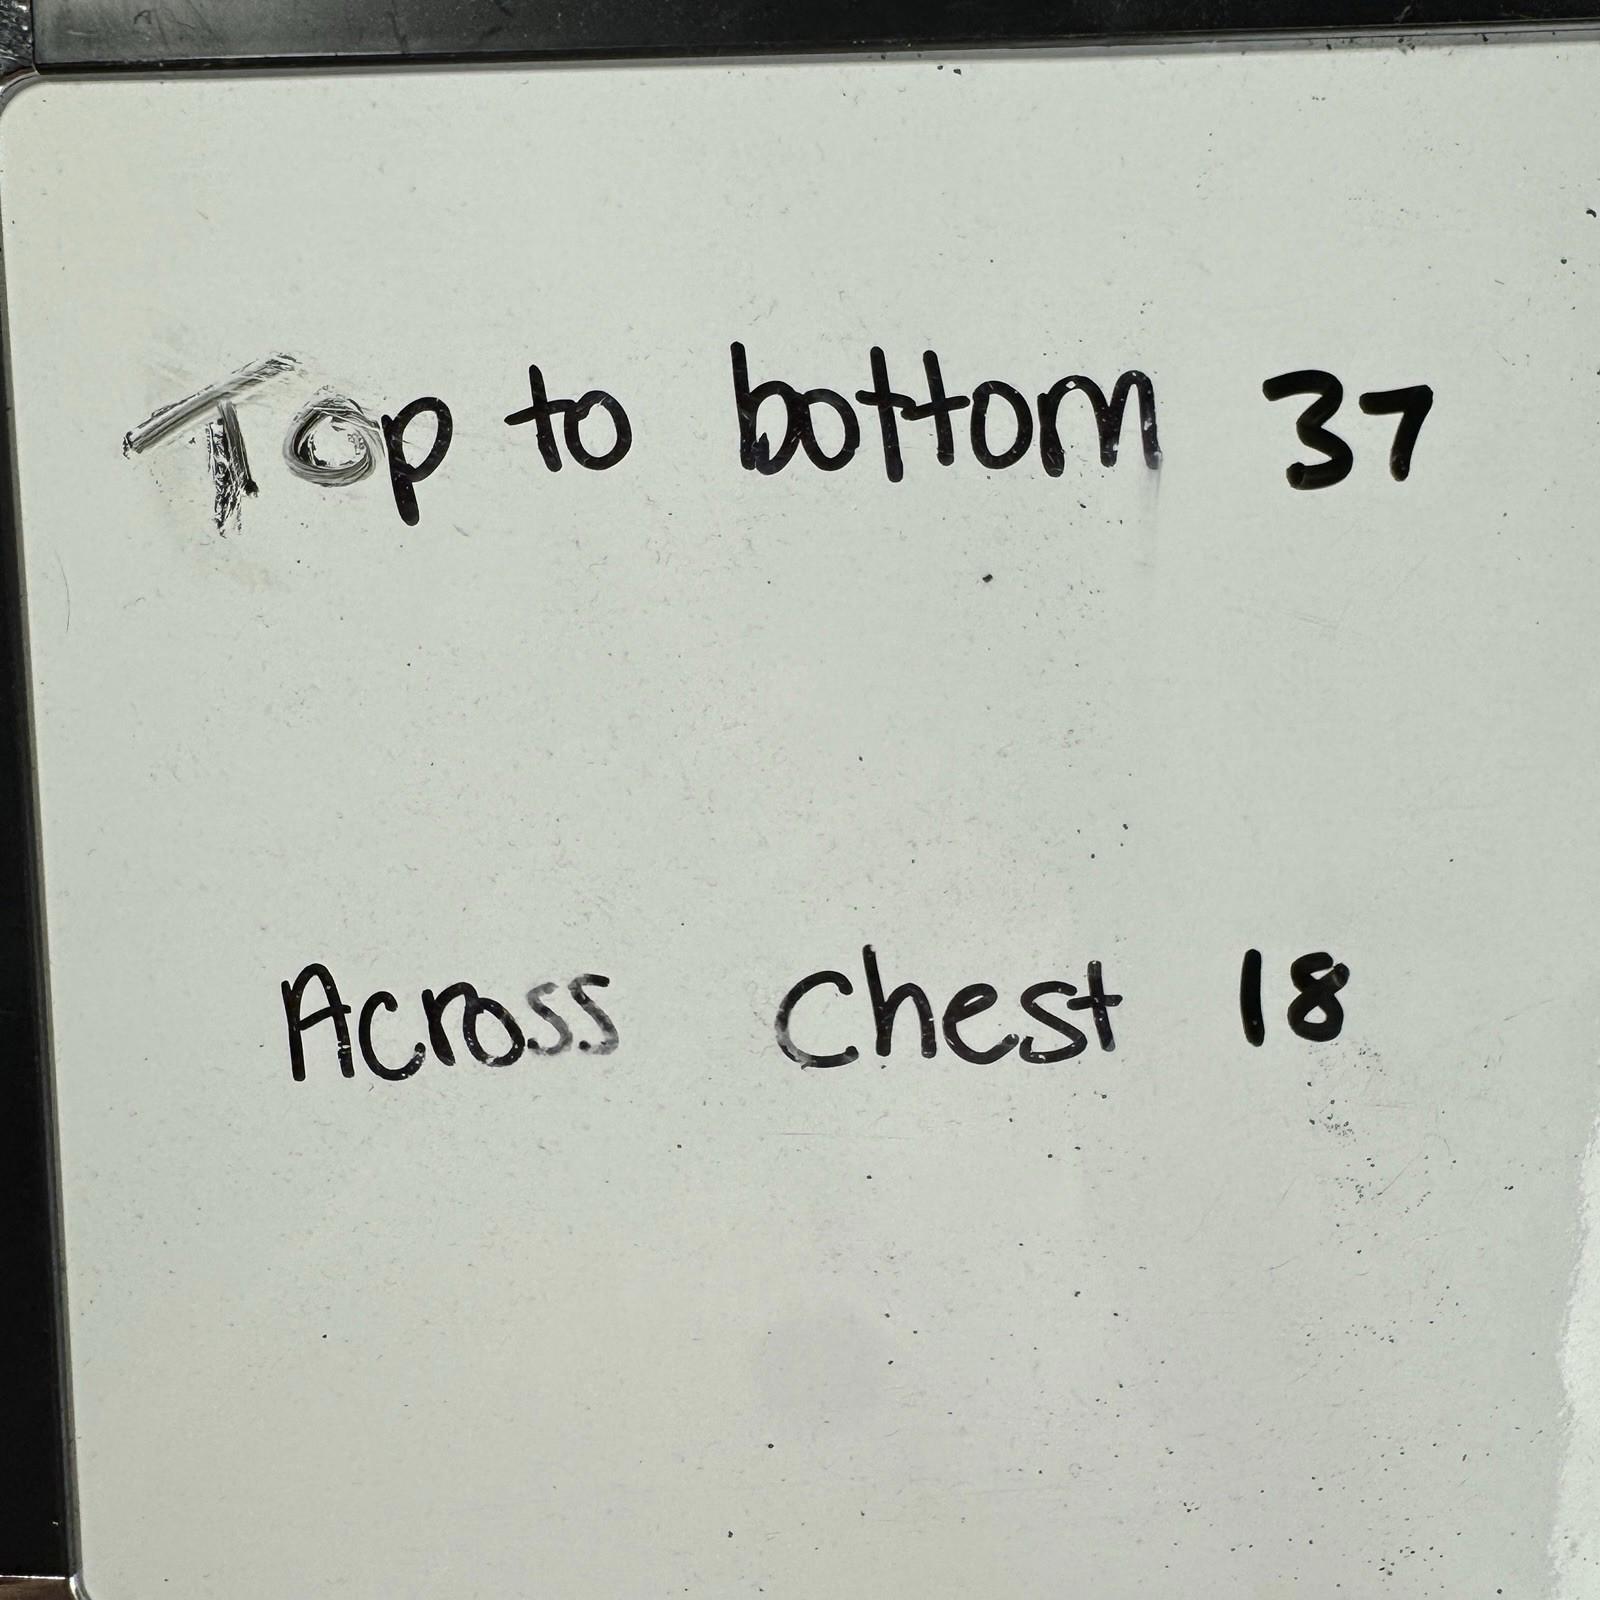 Top to bottom 37
Across chest 18